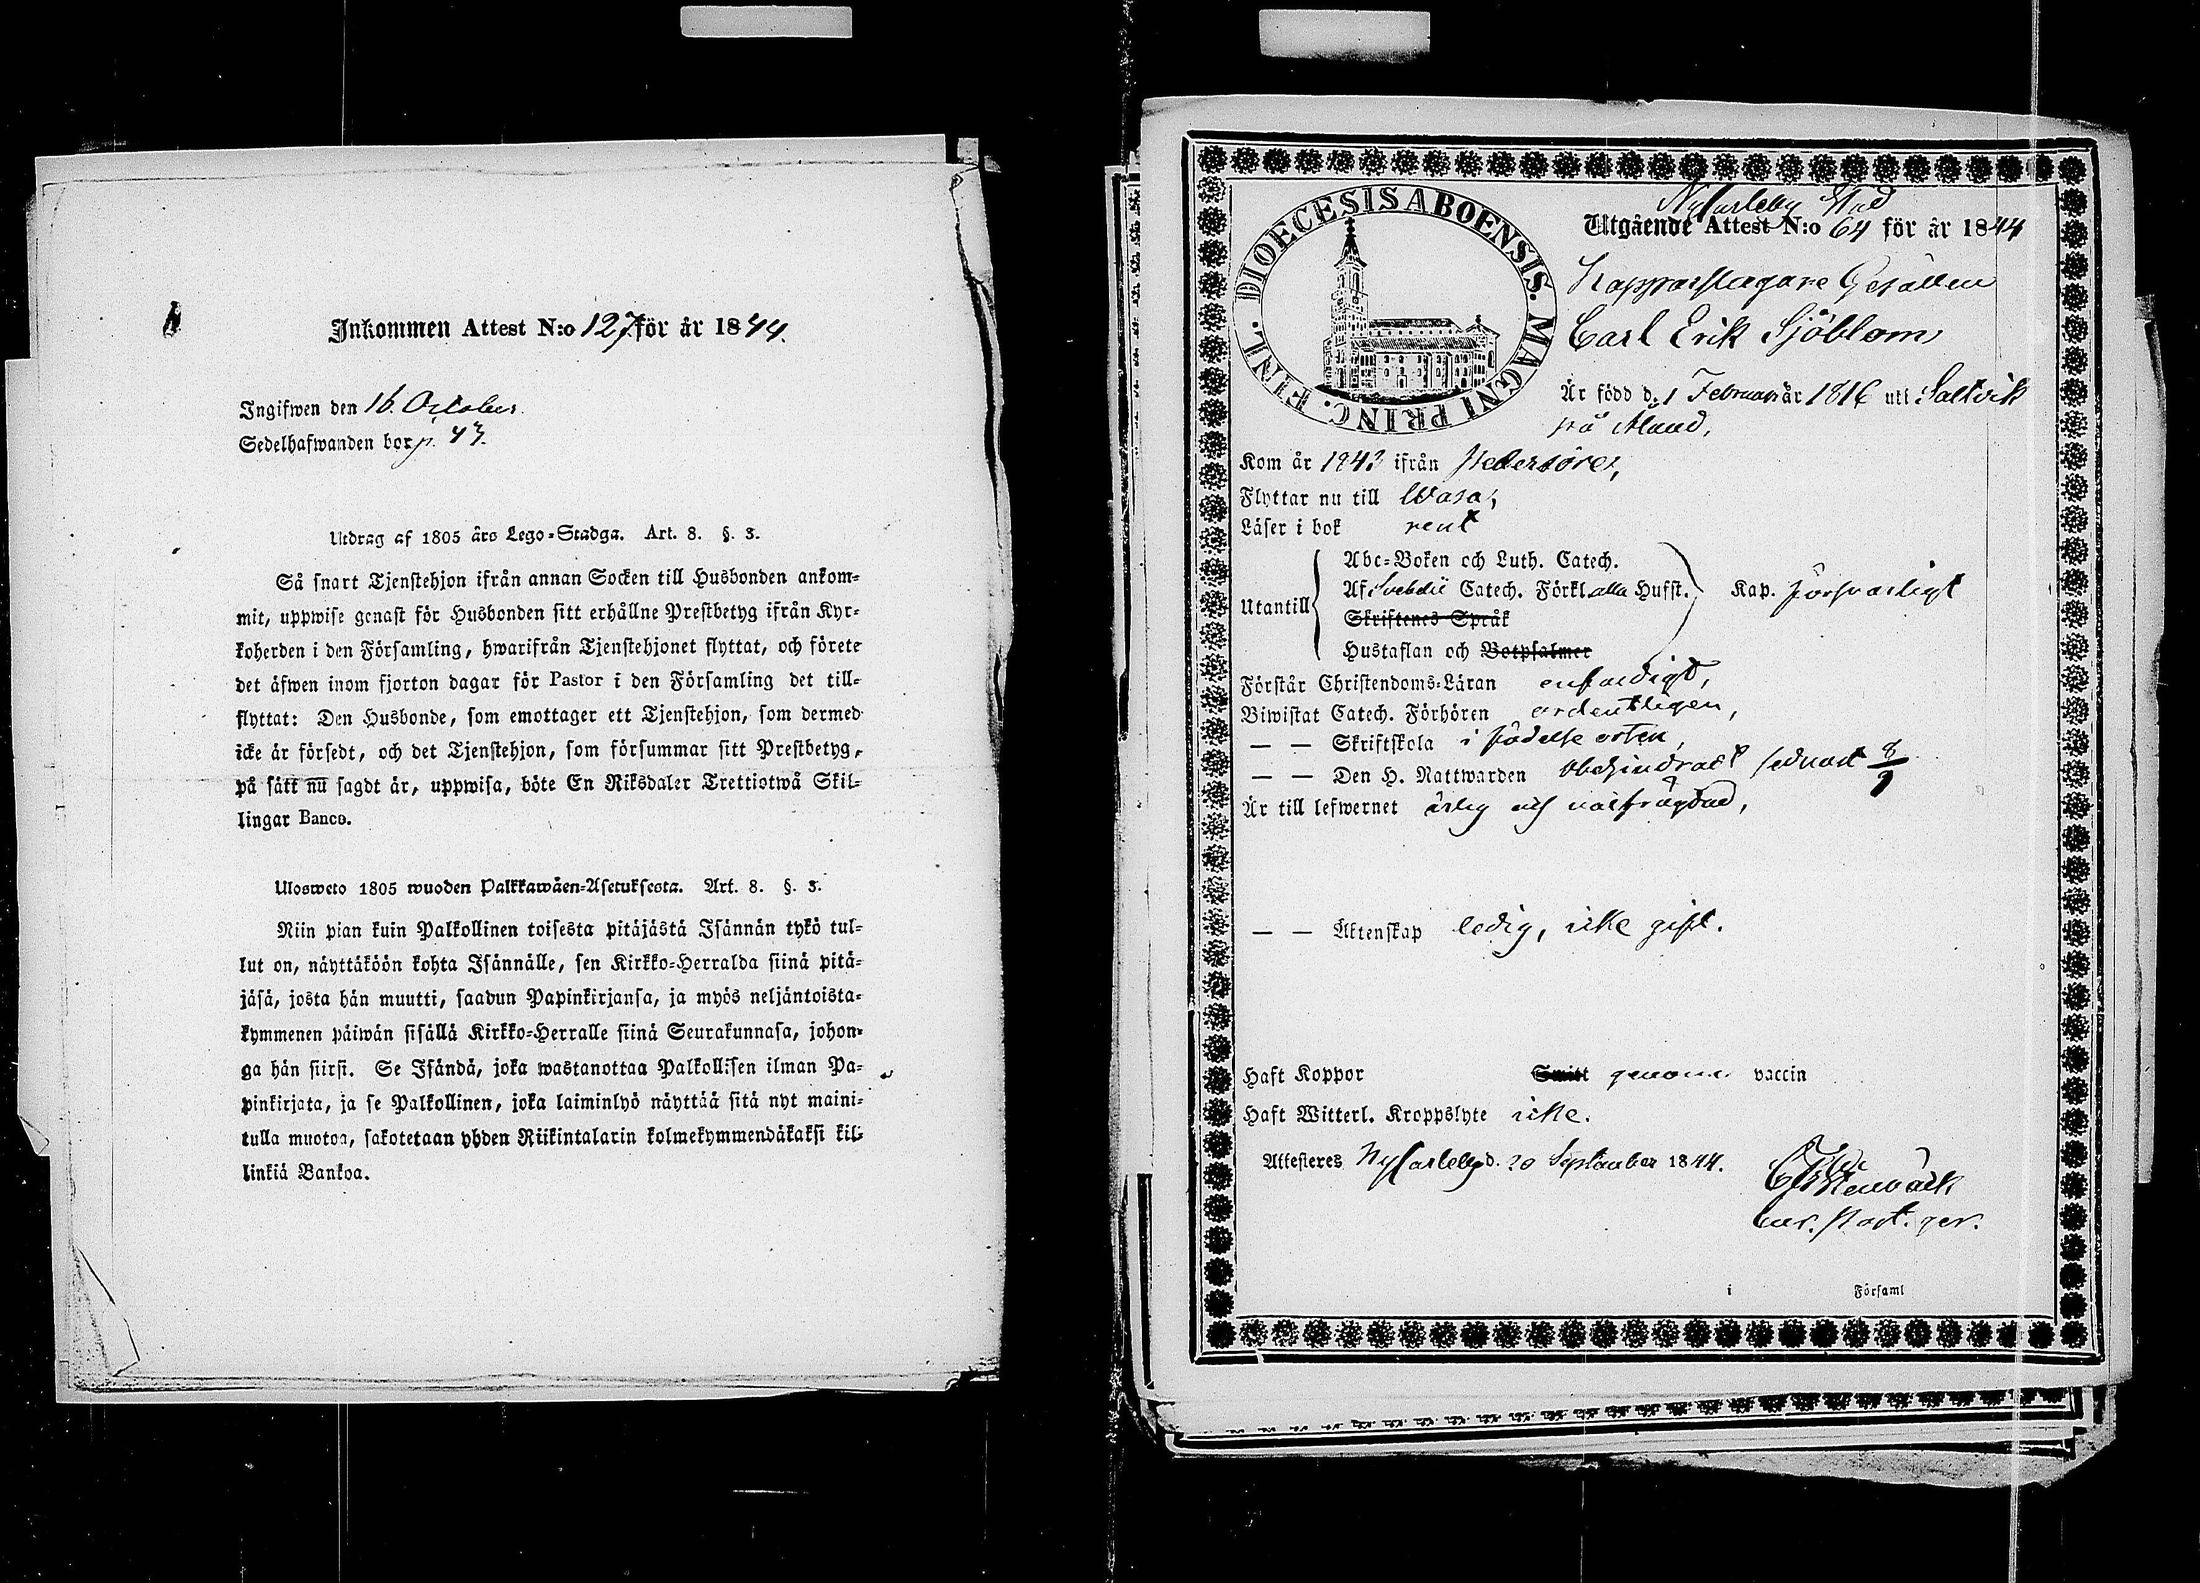 Inkommen Attest N:o 127 för år 1844.
Ingifwen den 16 October
Sedelhafwanden bor p. 43.
Utdrag af 1805 års Lego-Stadga. Art. 8. §. 3.
Så snart Tjenstehjon ifrån annan Socken till Husbonden ankom-
mit, uppwise genast för Husbonden sitt erhållne Prestbetyg ifrån Kyr-
koherden i den Församling, hwarifrån Tjenstehjonet flyttat, och förete
det äfwen inom fjorton dagar för Pastor i den Församling det till-
flyttat: Den Husbonde, som emottager ett Tjenstehjon, som dermed
icke är försedt, och det Tjenstehjon, som försummar sitt Prestbetyg,
på sätt nu sagdt är, uppwisa, böte En Riksdaler Trettiotwå Skil-
lingar Banco.
Ulosweto 1805 wuoden Palkkawäen-Asetuksesta. Art. 8. §. 3.
Niin pian kuin Palkollinen toisesta pitäjästä Isännän tykö tul-
lut on, näyttäköön kohta Isännälle, sen Kirkko-Herralda siinä pitä-
jäsä, josta hän muutti, saadun Papinkirjansa, ja myös neljäntoista-
kymmenen päiwän sisällä Kirkko-Herralle siinä Seurakunnasa, johon-
ga hän siirsi. Se Isändä, joka wastanottaa Palkollisen ilman Pa-
pinkirjata, ja se Palkollinen, joka laiminlyö näyttää sitä nyt maini-
tulla muotoa, sakotetaan yhden Riikintalarin kolmekymmendäkaksi kil-
linkiä Bankoa.
DIOECESIS ABOENSIS. MAGNI PRINC. FINL.
NyCarleby Stad
Utgående Attest N:o 64 för år 1844
Kopparslagare Gesällen
Carl Erik Sjöblom
Är född d. 1 Februari år 1816 uti Saltvik
på Åland,
Kom år 1843 ifrån Pedersöre,
Flyttar nu till Wasa,
Läser i bok rent
Utantill
Abc-Boken och Luth. Catech.
Af Svebelii Catech. Förkl. alla Hufst. Kap. försvarligt
Skriftenes Språk
Hustaflan och Botpsalmer
Förstår Christendoms-Läran enfaldigt,
Biwistat Catech. Förhören ordentligen,
— — Skriftskola i födelse orten,
— — Den H. Nattwarden obehindradt sednast 8/9
Är till lefwernet ärlig och välfrägdad,
— — Äktenskap ledig, icke gift.
Haft Koppor Smitt genom vaccin
Haft Witterl. Kroppslyte icke.
Attesteres NyCarleby d. 20 September 1844.
past. ger.
i Församl